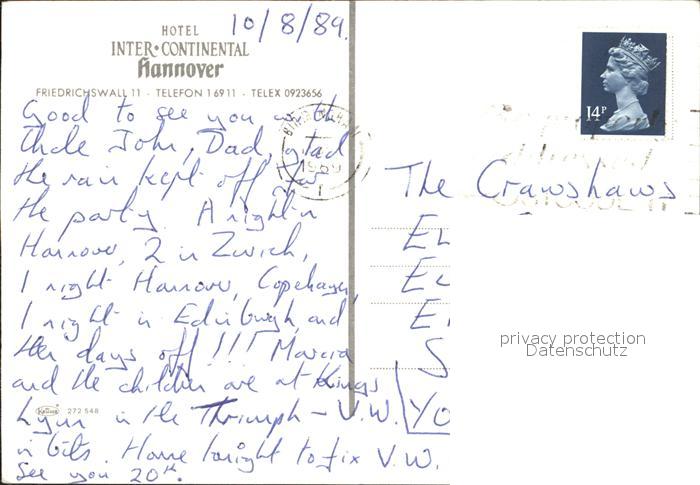 10/8/89.
HOTEL
INTER•CONTINENTAL
Hannover
FRIEDRICHSWALL 11 · TELEFON 16911 · TELEX 0923656
Good to see you with
Uncle John, Dad, glad
the rain kept off for
the party. A night in
Hannover, 2 in Zurich,
1 night Hannover, Copenhagen,
1 night in Edinburgh and
then days off!!! Marcia
and the children are at Kings
Lynn in the Triumph - V.W.
in bits. Home tonight to fix V.W.
See you 20th.
272 548
14P
1989
The Crawshaws
EL
EL
E
S
YO
privacy protection
Datenschutz